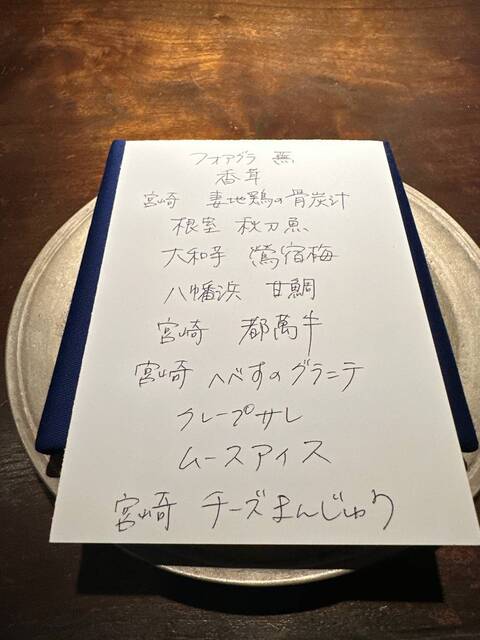 フォアグラ 無
香茸
宮崎 妻地鶏の骨炭汁
根室 秋刀魚
大和芋 鶯宿梅
八幡浜 甘鯛
宮崎 都萬牛
宮崎 へべすのグラニテ
クレープサレ
ムースアイス
宮崎 チーズまんじゅう